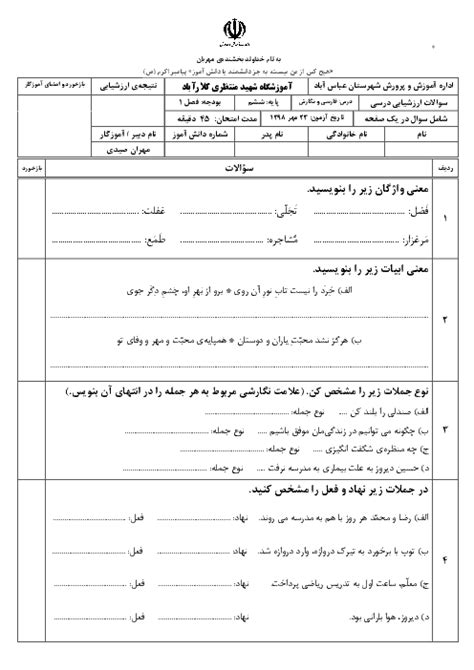 به نام خداوند بخشنده‌ی مهربان
«هیچ کس از من نیست، به جز دانشمند یا دانش آموز» پیامبر اکرم (ص)
اداره آموزش و پرورش شهرستان عباس آباد
آموزشگاه شهید منتظری کلارآباد
نتیجه‌ی ارزشیابی
بازخورد و امضای آموزگار
سوالات ارزشیابی درسی
درس: فارسی و نگارش
پایه: ششم
بودجه: فصل ۱
شامل سوال در یک صفحه
تاریخ آزمون: ۲۳ مهر ۱۳۹۸
مدت امتحان: ۴۵ دقیقه
نام
نام خانوادگی
نام پدر
شماره دانش آموز
نام دبیر / آموزگار
مهران صیدی
ردیف
سؤالات
بازخورد
۱
معنی واژگان زیر را بنویسید.
فَضل: ........................ تَجَلّی: ........................ غفلت: ........................
مَرغزار: ........................ مُشاجره: ........................ طَمَع: ........................
۲
معنی ابیات زیر را بنویسید.
الف) خِرَد را نیست تابِ نورِ آن روی * برو از بَهرِ او، چشمِ دِگر جوی
ب) هرگز نشد محبّتِ یاران و دوستان * همپایه‌ی محبّت و مهر و وفای تو
۳
نوع جملات زیر را مشخص کن. (علامت نگارشی مربوط به هر جمله را در انتهای آن بنویس.)
الف) صندلی را بلند کن .... نوع جمله: ........................
ب) چگونه می توانیم در زندگی‌مان موفق باشیم .... نوع جمله: ........................
ج) چه منظره‌ی شگفت انگیزی .... نوع جمله: ........................
د) حسین دیروز به علت بیماری به مدرسه نرفت .... نوع جمله: ........................
۴
در جملات زیر نهاد و فعل را مشخص کنید.
الف) رضا و محمّد هر روز با هم به مدرسه می روند. نهاد: ........................ فعل: ........................
ب) توپ با برخورد به تیرک دروازه، وارد دروازه شد. نهاد: ........................ فعل: ........................
ج) معلّم، ساعت اول به تدریس ریاضی پرداخت. نهاد: ........................ فعل: ........................
د) دیروز، هوا بارانی بود. نهاد: ........................ فعل: ........................